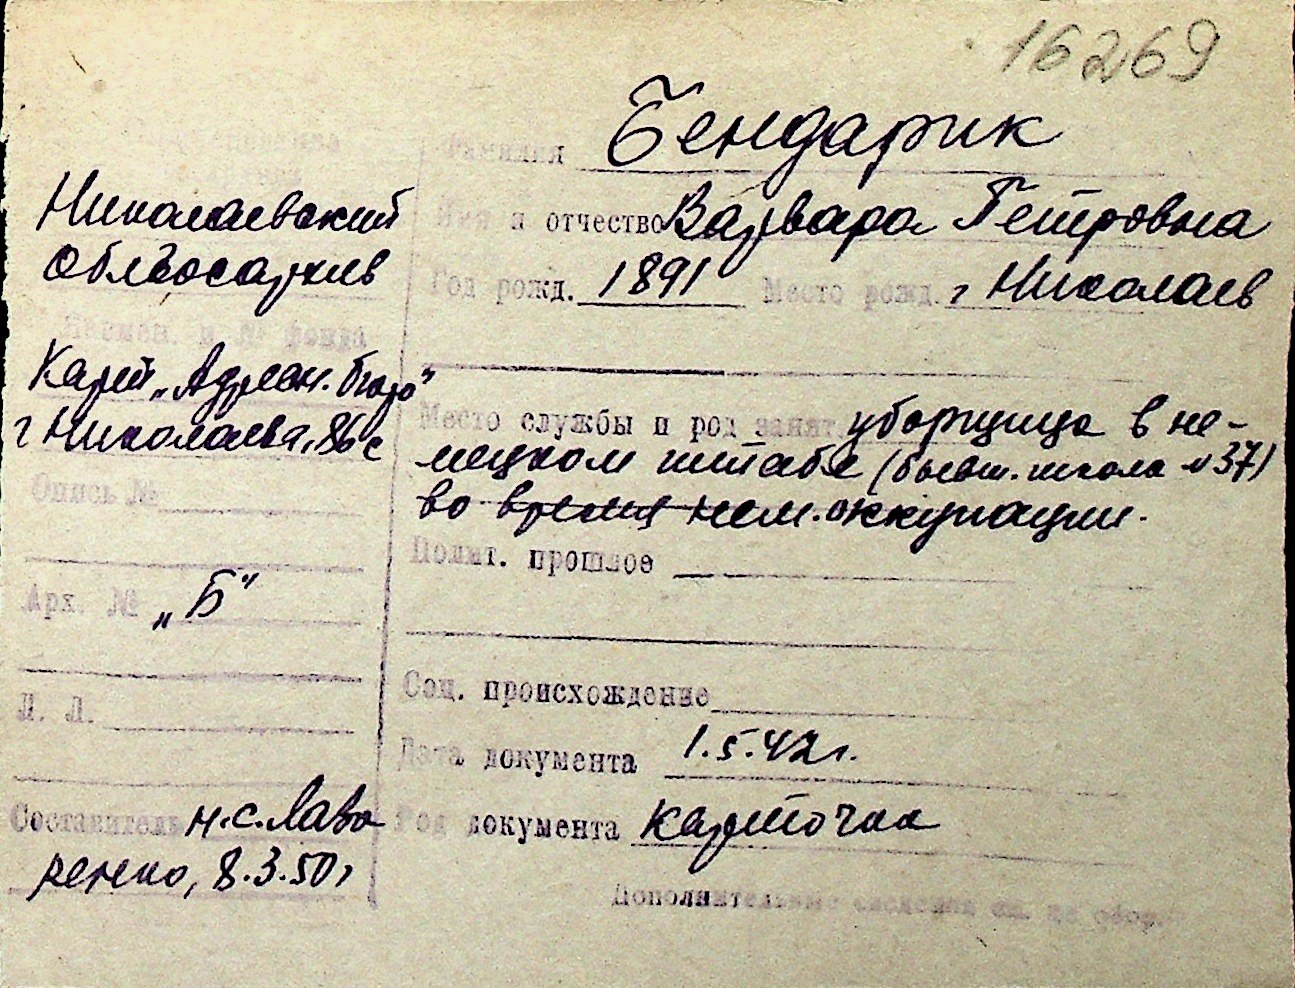 16269
Фамилия Бендарик
Николаевский
Облгосархив
Имя и отчество Варвара Петровна
Год рожд. 1891 Место рожд. г Николаев
Наимен. и № фонда
Карт „Адресн. бюро”
г Николаева, 86 с
Место службы и род занят уборщица в не-
мецком штабе (бывш. школа № 37)
во время нем. оккупации.
Опись №
Полит. прошлое
Арх. № „Б”
Соц. происхождение
Л. Л.
Дата документа 1.5.42 г.
Составитель н.с. Лавр
ренко, 8.3.50 г
Род документа карточка
Дополнительные сведения см. на обор.